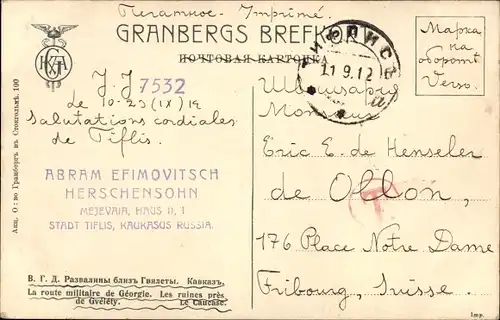 Печатное - Imprimé
GRANBERGS BREFKOR
ПОЧТОВАЯ КАРТОЧКА
Марка
на
обороте
Verso.
ТИФЛИСЪ
11 9.12
J. J 7532
Le 10-23 (IX) 12
Salutations cordiales
de Tiflis.
ABRAM EFIMOVITSCH
HERSCHENSOHN
MEJEVAIA, HAUS 11, 1
STADT TIFLIS, KAUKASUS RUSSIA.
Швейцарія
Monsieur
Eric E. de Henseler
de Ollon,
T
176 Place Notre Dame
Fribourg, Suisse.
Акц. О-во Гранбергъ въ Стокгольмѣ. 100
В. Г. Д. Развалины близъ Гвилеты. Кавказъ.
La route militaire de Géorgie. Les ruines près
de Gvéléty. Le Caucase.
Imp.